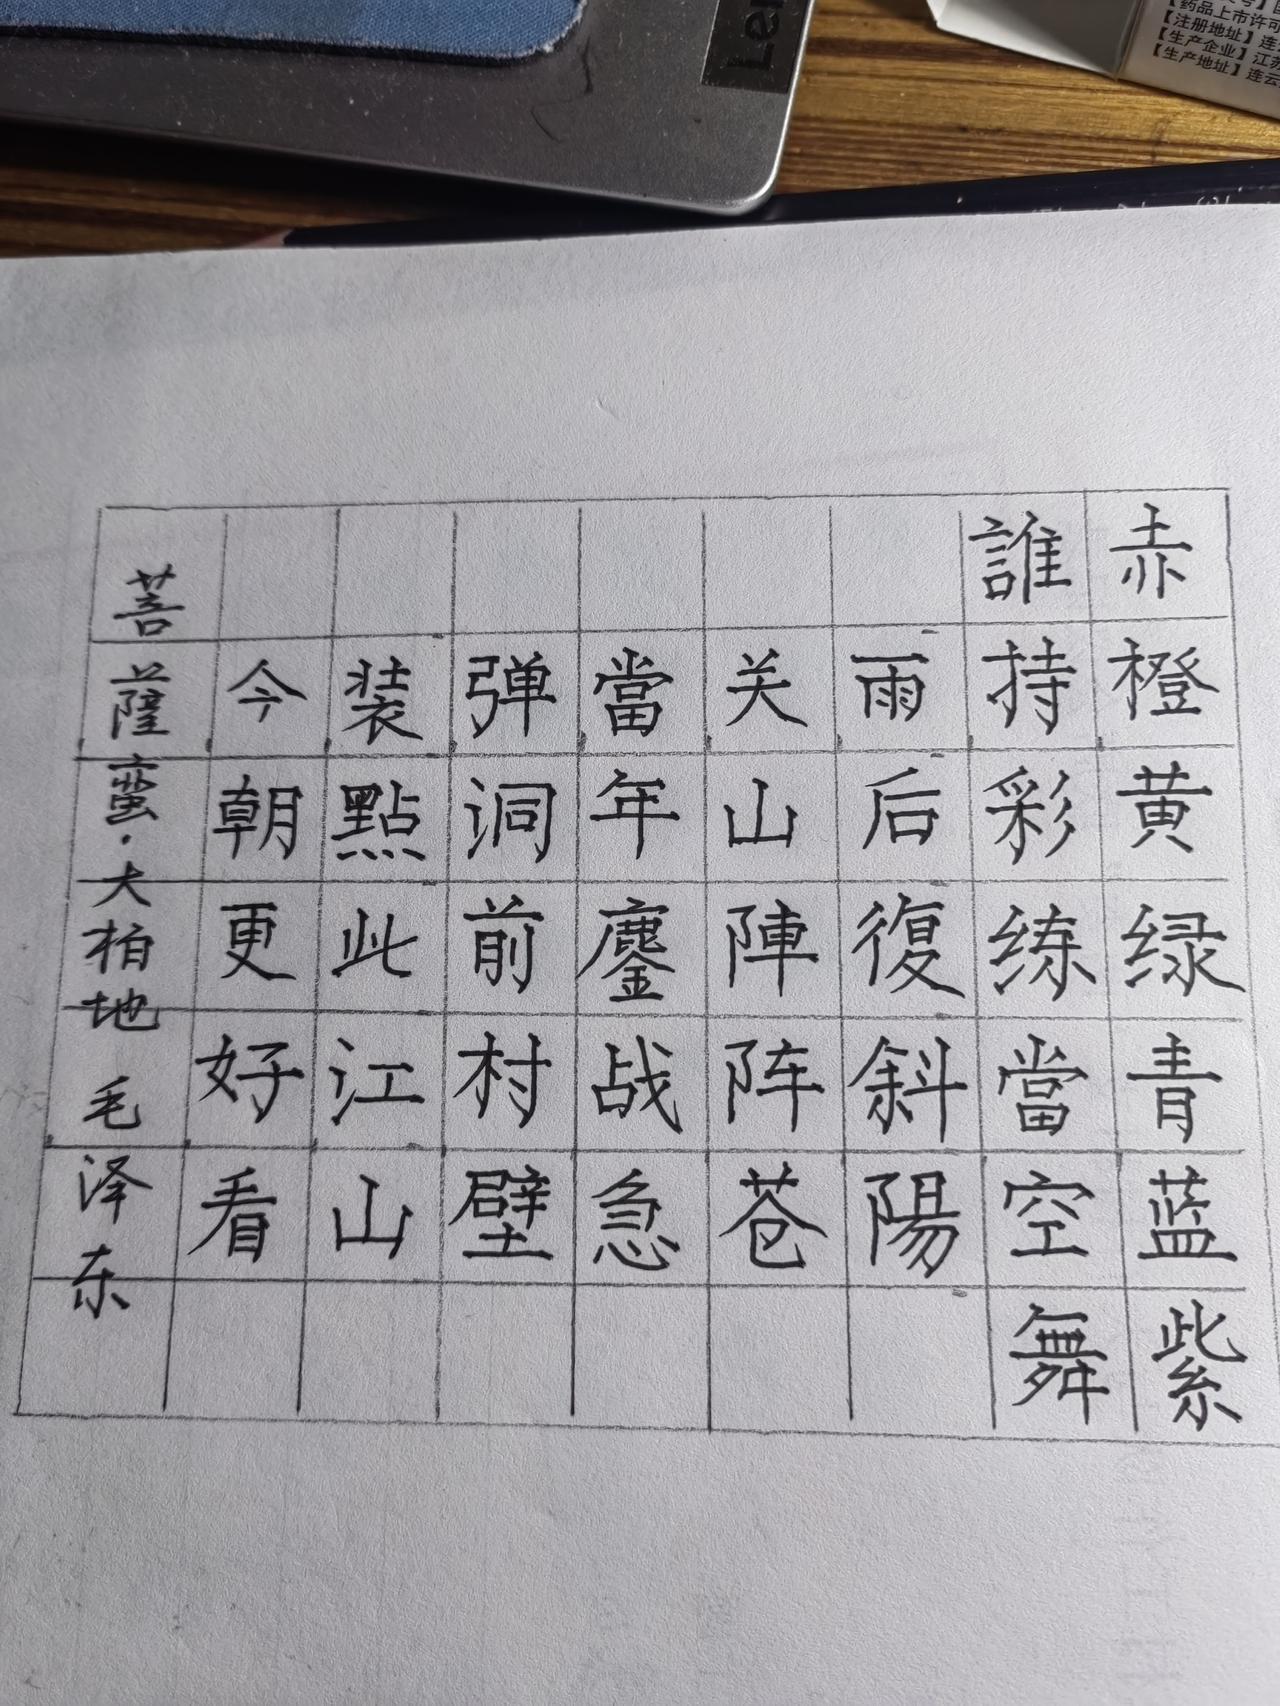 赤橙黄绿青蓝紫
誰持彩练當空舞
雨后復斜陽
关山陣阵苍
當年鏖战急
弹洞前村壁
装點此江山
今朝更好看
菩薩蛮·大柏地 毛泽东
Len
【药品上市许可
【注册地址】连
【生产企业】江苏
【生产地址】连云